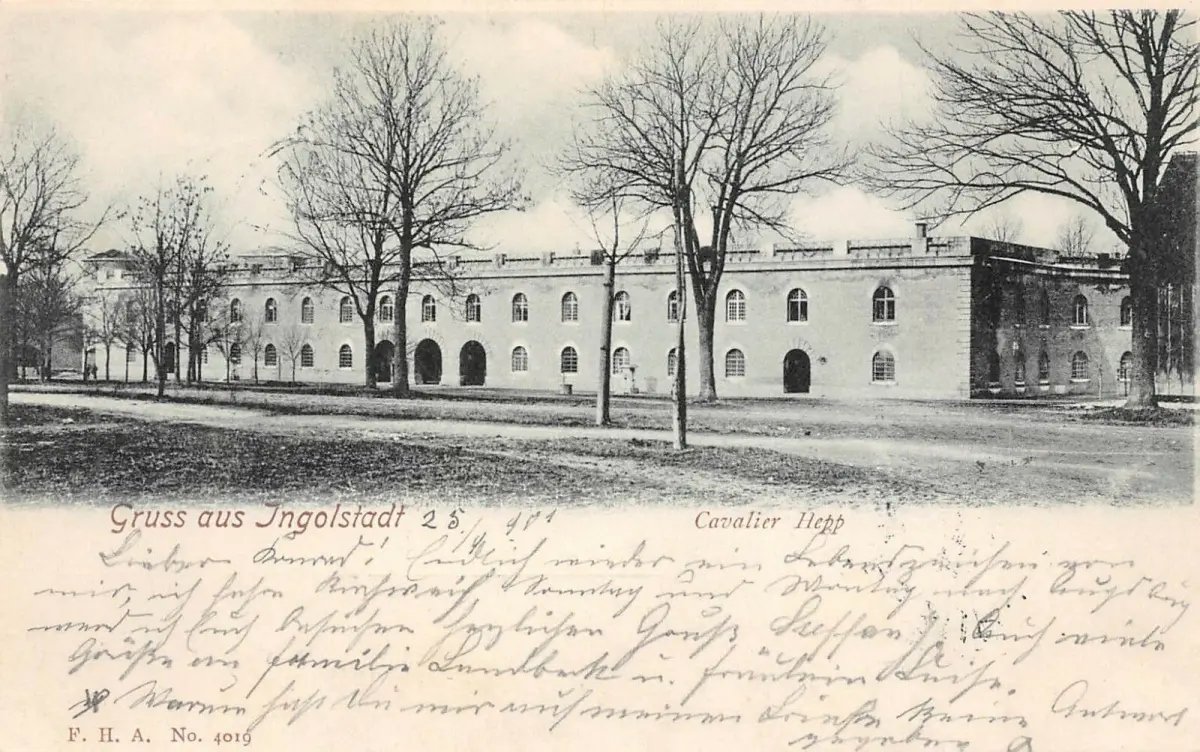 Gruss aus Ingolstadt 25/4 901
Cavalier Hepp
Lieber Konrad! Endlich wieder ein Lebenszeichen von
mir, ich fahre Sonntag und Montag nach Augsburg
werd ich Euch besuchen herzlichen Gruß Auch viele
Grüße an Familie Landbeck u. Fräulein Luise.
Warum hast Du mir auf meinen Brief keine Antwort
gegeben
F. H. A. No. 4019